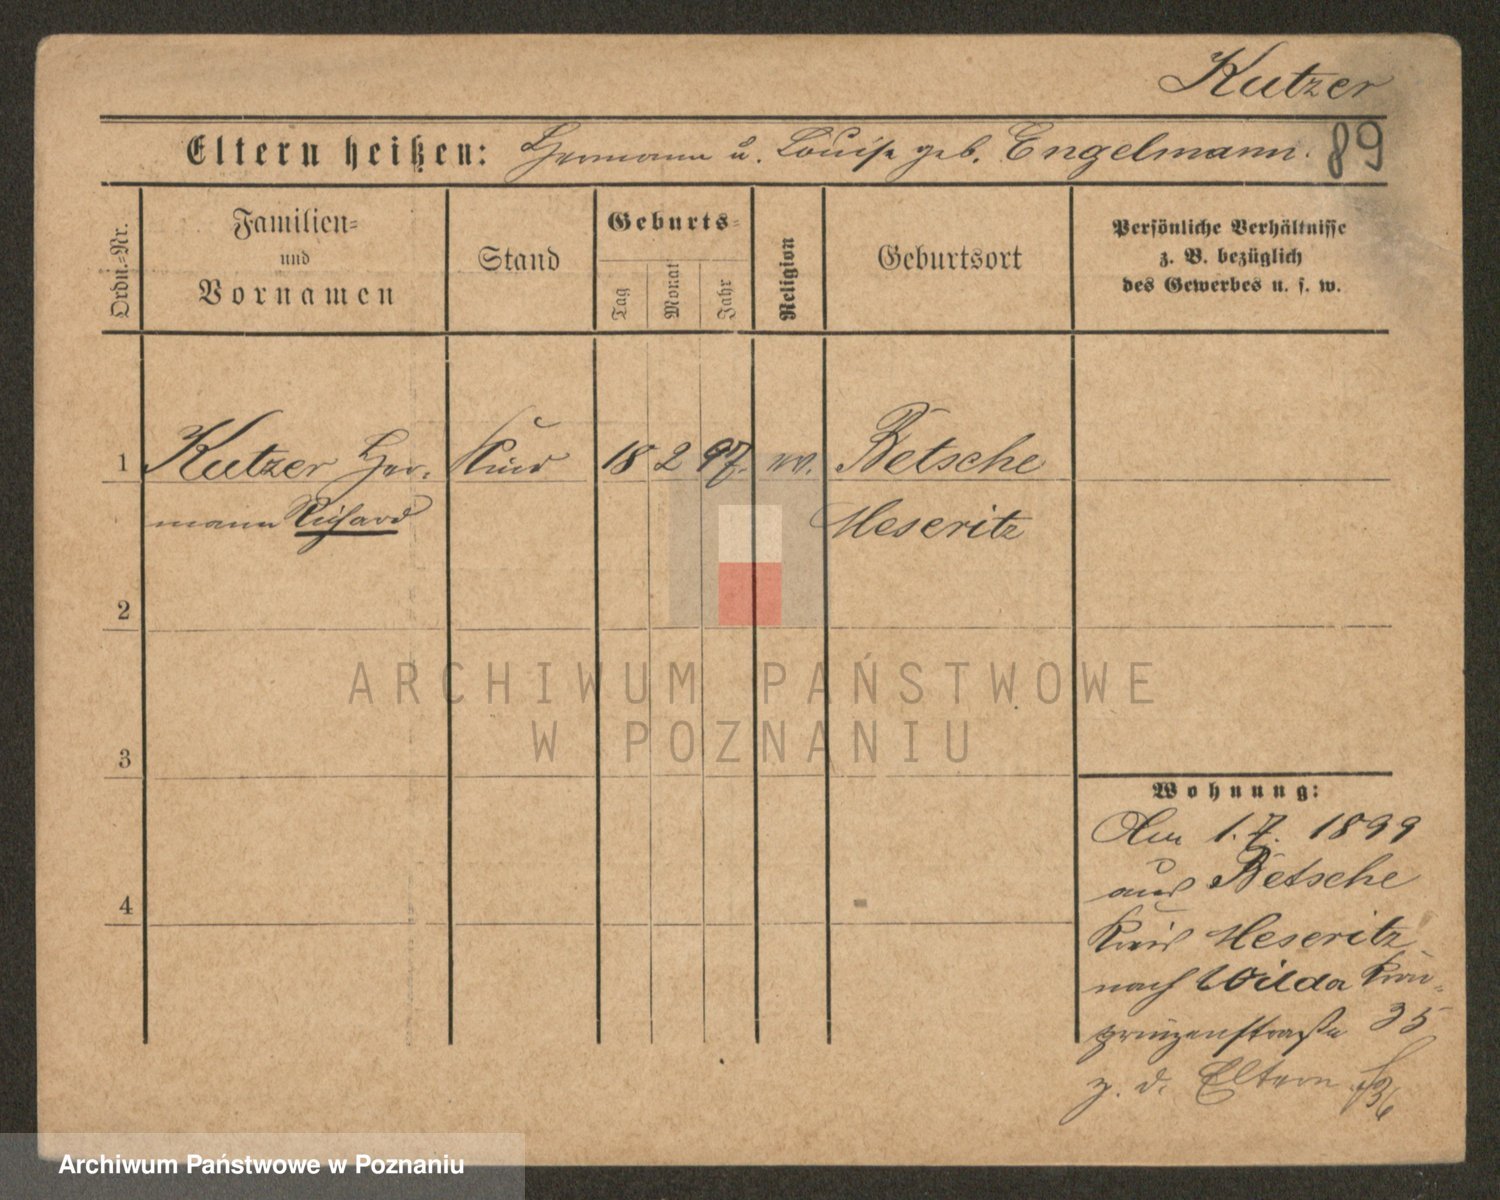 Kutzer
89
Eltern heißen: Hermann u. Louise geb. Engelmann.
Ordn.-Nr.
Familien-
und
Vornamen
Stand
Geburts-
Tag
Monat
Jahr
Religion
Geburtsort
Persönliche Verhältnisse
z. B. bezüglich
des Gewerbes u. s. w.
1 Kutzer Her- Kind 18 2 97. ev. Betsche
mann Richard Meseritz
2
3
4
Wohnung:
Am 1.7. 1899
aus Betsche
Kreis Meseritz
nach Wilda Kron-
prinzenstraße 35
z. d. Eltern
ARCHIWUM PAŃSTWOWE
W POZNANIU
Archiwum Państwowe w Poznaniu